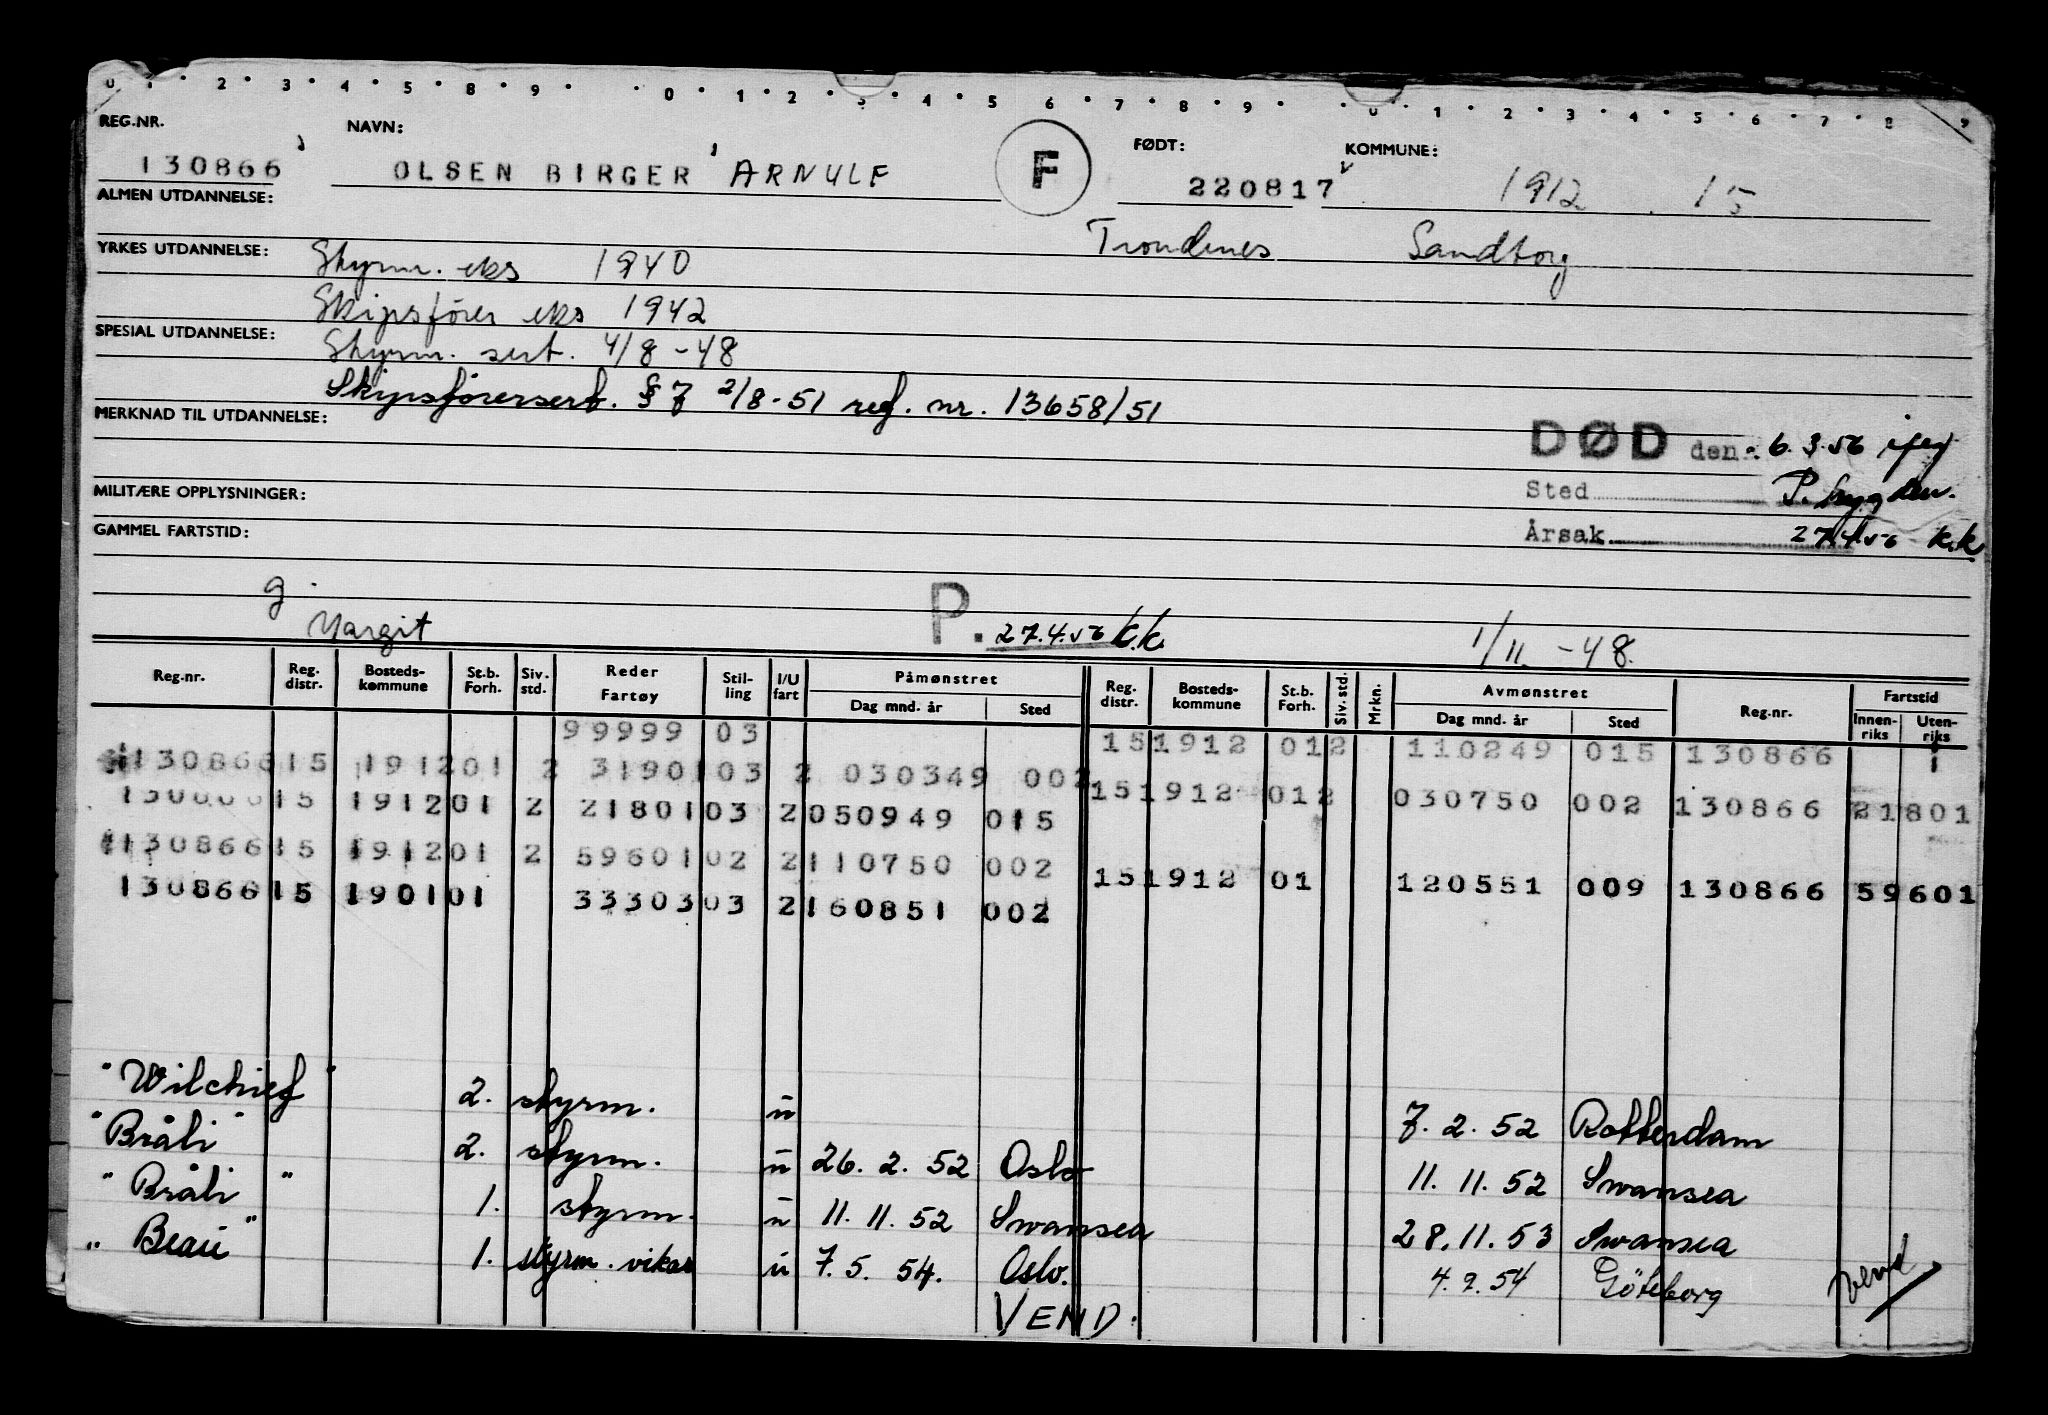 0 1 2 3 4 5 8 9 0 1 2 3 4 5 6 7 8 9 0 1 2 3 4 5 6 7 8 9
REG.NR. NAVN: FØDT: KOMMUNE:
130866 OLSEN BIRGER ARNULF F 220817 1912 15
ALMEN UTDANNELSE:
Trondenes Sandtorg
YRKES UTDANNELSE: Styrm. eks 1940
Skipsfører eks 1942
SPESIAL UTDANNELSE: Styrm. sert. 4/8-48
Skipsførersert. § 7 2/8-51 ref. nr. 13658/51
MERKNAD TIL UTDANNELSE:
DØD den 6.3.56
Sted P.
MILITÆRE OPPLYSNINGER:
Årsak 27.4.56 k.k
GAMMEL FARTSTID:
g.
Margit P. 27.4.56 k.k. 1/11-48.
Reg.nr. Reg. distr. Bosteds-kommune St.b. Forh. Siv. std. Reder Fartøy Stil-ling I/U fart Påmønstret Dag mnd. år Sted Reg. distr. Bosteds-kommune St.b. Forh. Siv. std. Mrkn. Avmønstret Dag mnd. år Sted Reg.nr. Fartstid Innen-riks Uten-riks
99999 03 15 1912 01 2 110249 015 130866 1
130866 15 1912 01 2 31901 03 2 030349 002
15 1912 01 2 030750 002 130866 21801
130866 15 1912 01 2 21801 03 2 050949 015
130866 15 1912 01 2 59601 02 2 110750 002
15 1912 01 120551 009 130866 59601
130866 15 1901 01 33303 03 2 160851 002
"Wilchief" 2. styrm. u 7. 2. 52 Rotterdam
"Bråli" 2. styrm. u 26. 2. 52 Oslo 11. 11. 52 Swansea
"Bråli" 1. styrm. u 11. 11. 52 Swansea 28. 11. 53 Swansea
"Beau" 1. styrm. vikar u 7. 5. 54. Oslo. 4. 9. 54 Göteborg
VEND. Vend